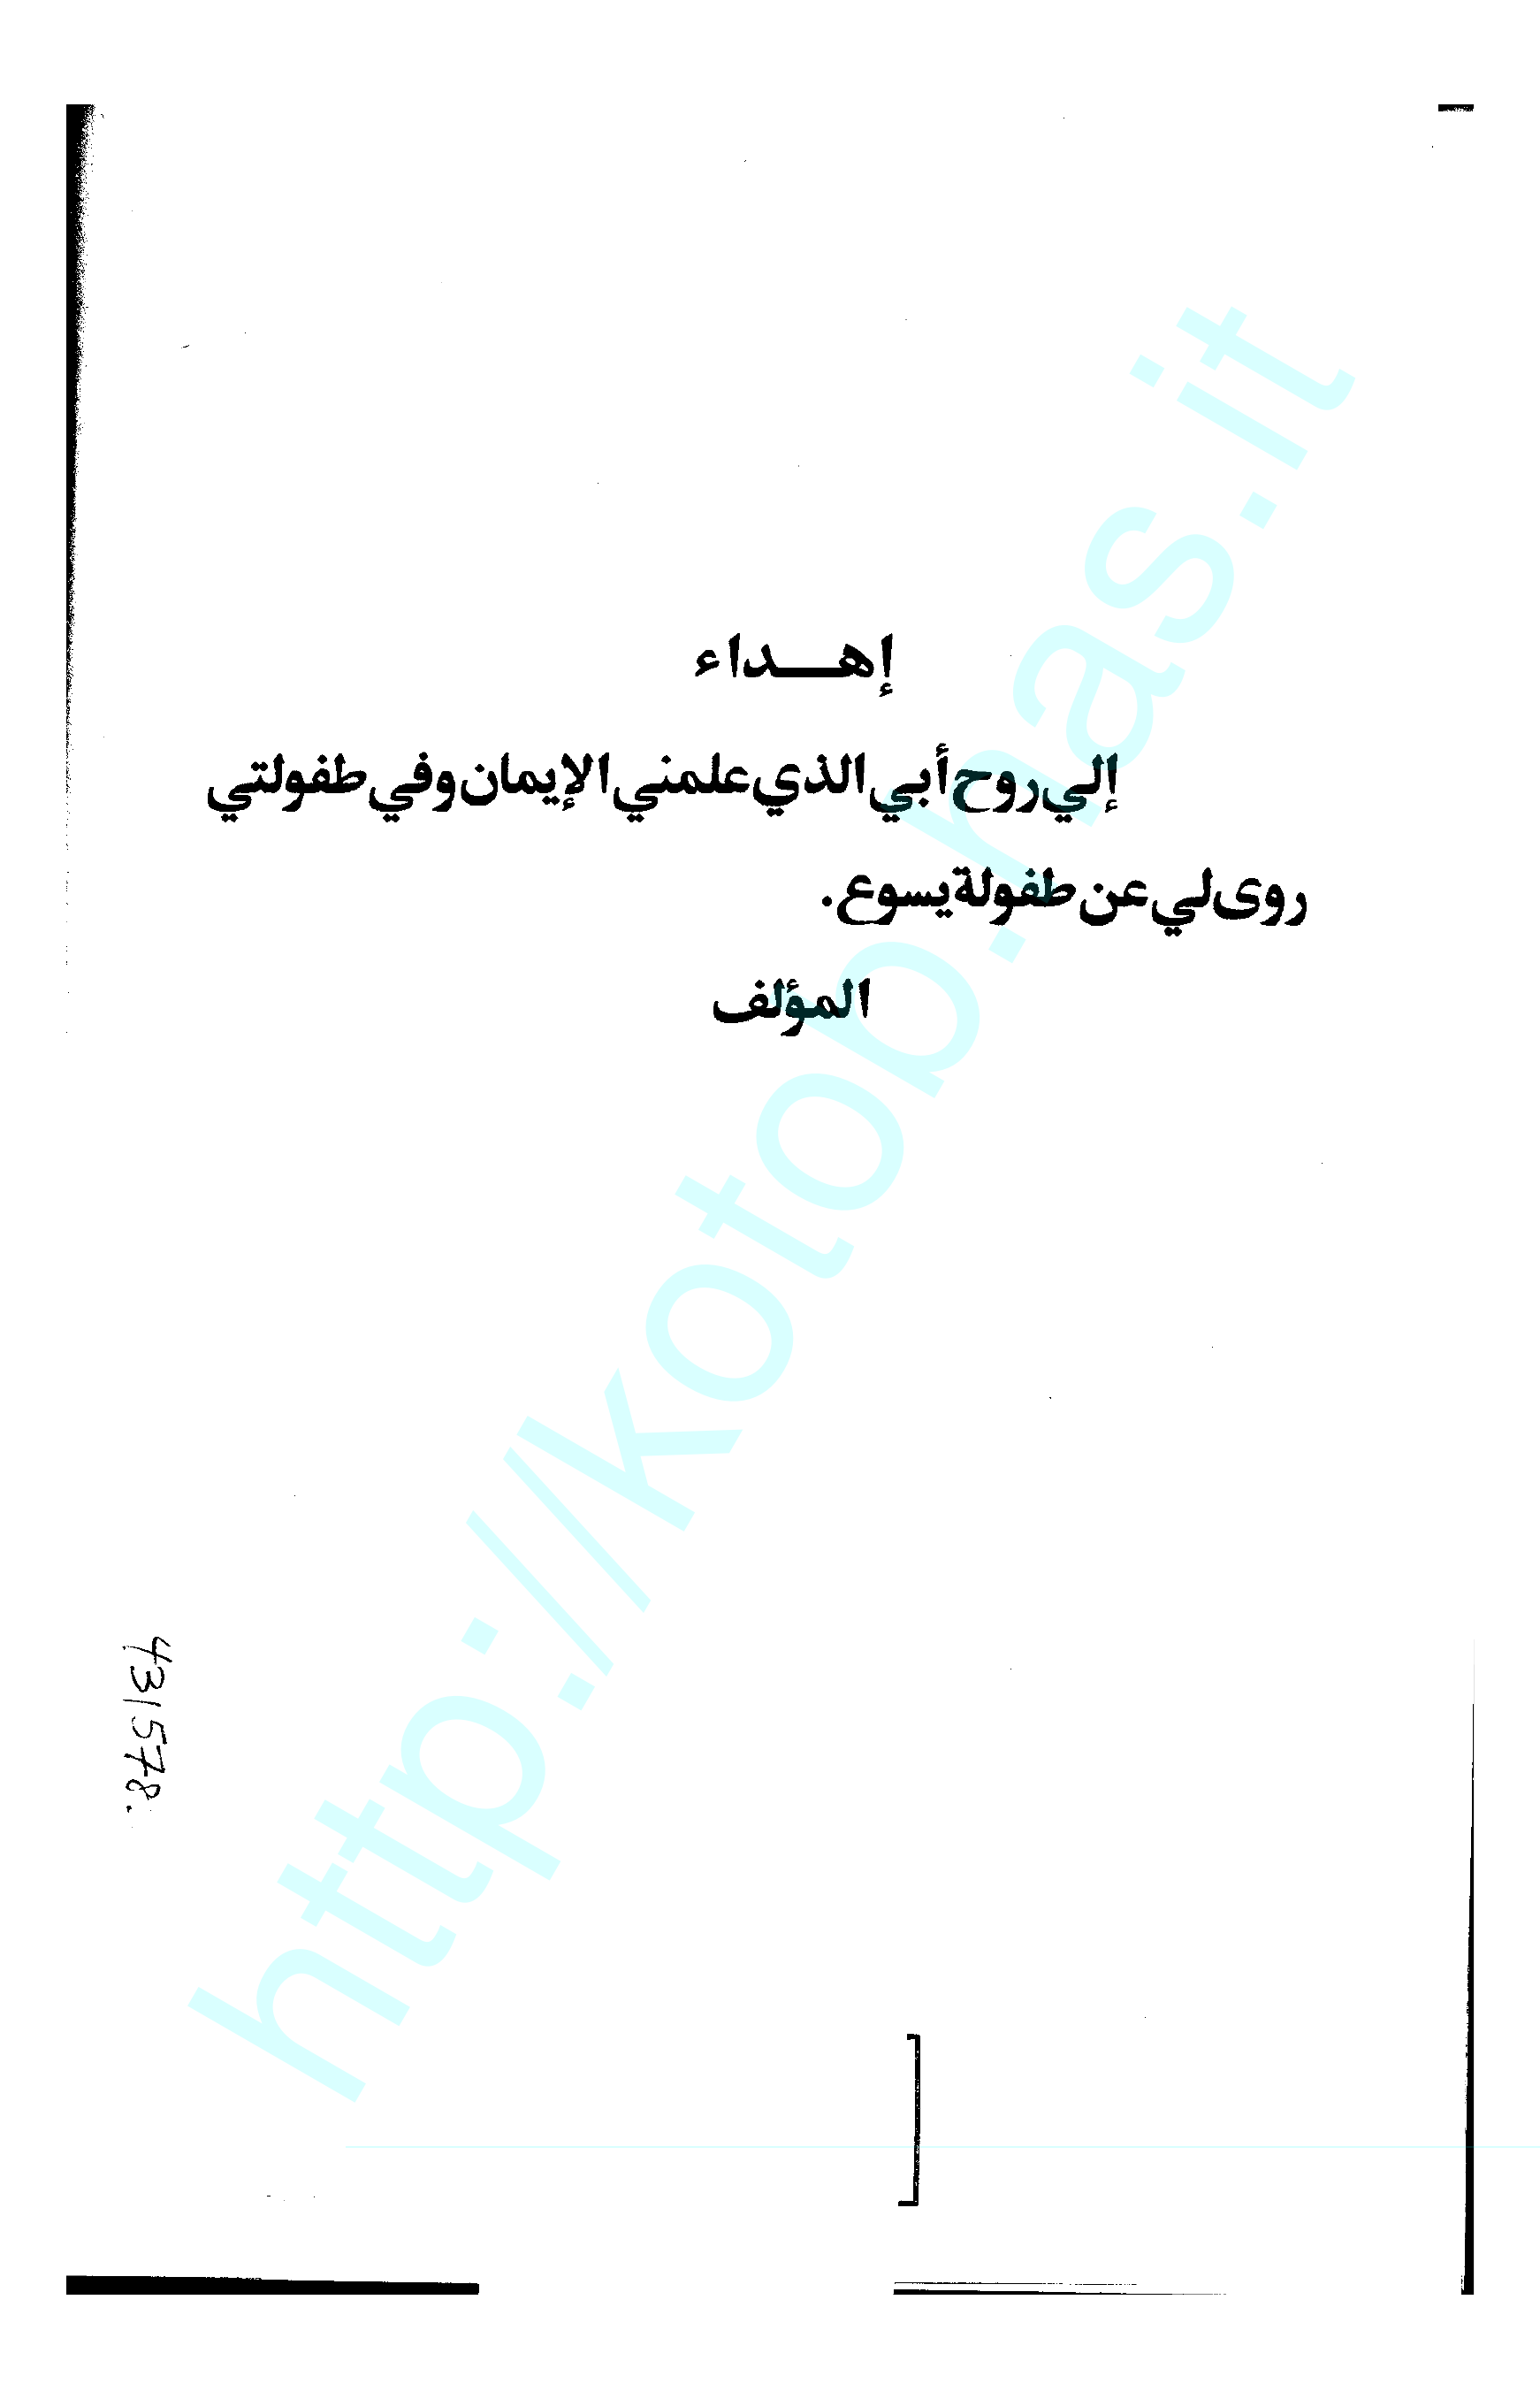 إهـــداء
إلي روح أبي الذي علمني الإيمان وفي طفولتي
روى لي عن طفولة يسوع.
المؤلف
http://kotob.has.it
431578.